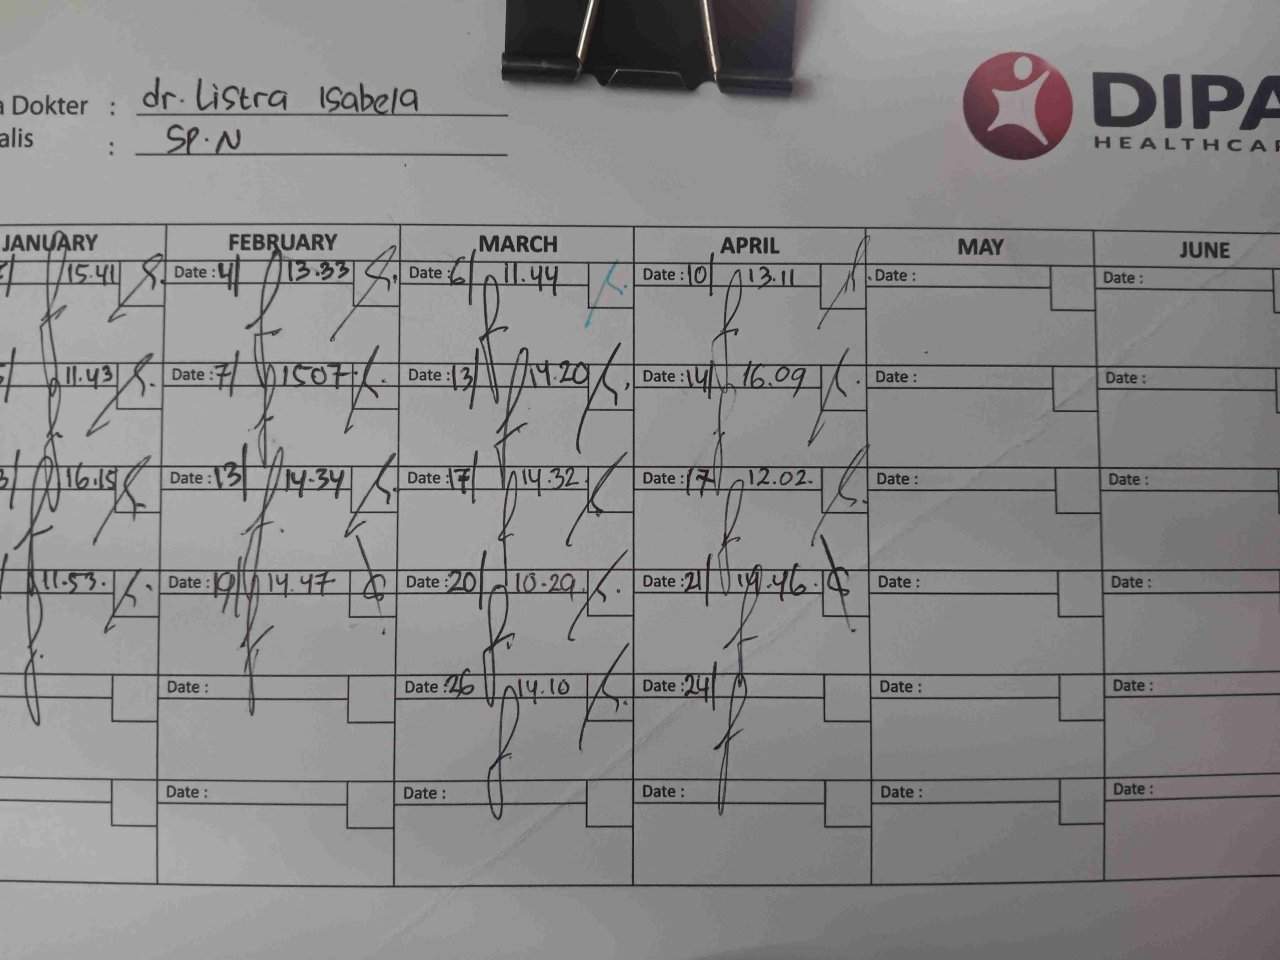 a Dokter : dr. Listra Isabela
alis : SP.N
DIPA
HEALTHCAR
JANUARY FEBRUARY MARCH APRIL MAY JUNE
15.41 Date : 4/ 13.33 Date : 6/ 11.44 Date : 10/ 13.11 Date : Date :
11.43 Date : 7/ 1507 Date : 13/ 14.20 Date : 14/ 16.09 Date : Date :
16.15 Date : 13/ 14.34 Date : 17/ 14.32 Date : 17 12.02. Date : Date :
11.53. Date : 19/ 14.47 Date : 20/ 10.29 Date : 21/ 14.46. Date : Date :
Date : Date : 26 14.10 Date : 24/ Date : Date :
Date : Date : Date : Date : Date :